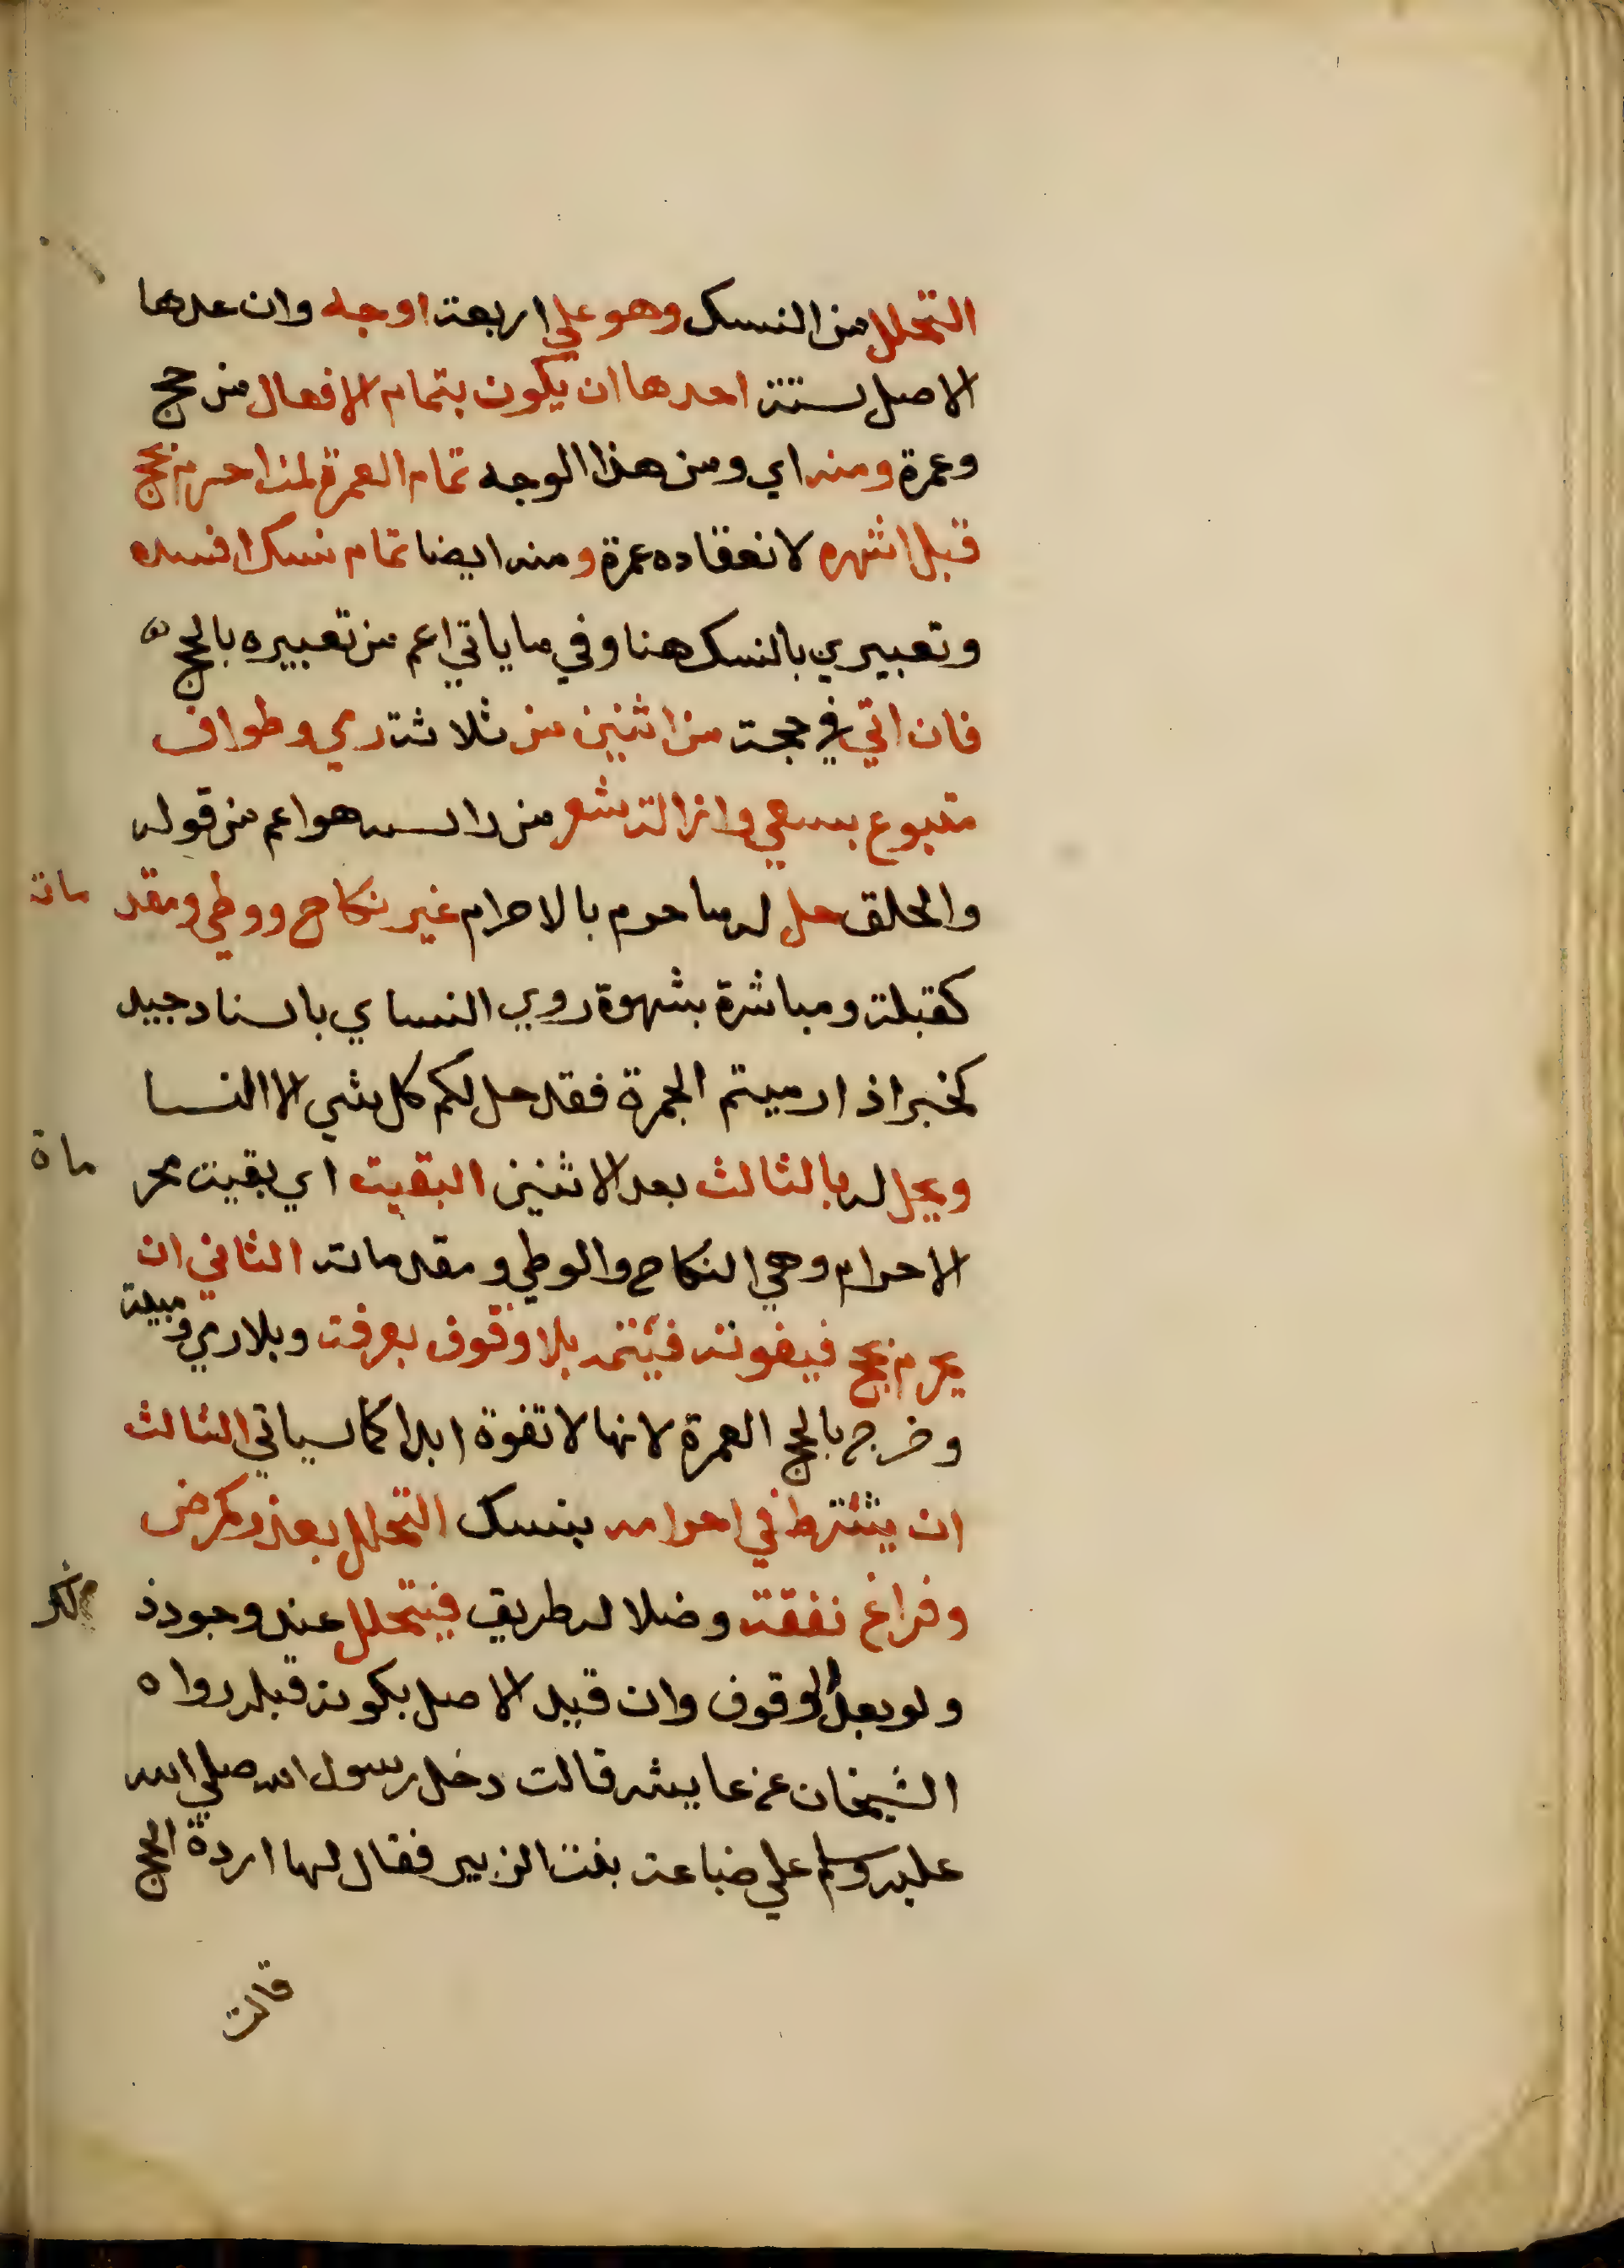 التحلل من النسك وهو علي اربعة اوجه وان عدها
الاصل ستة احدها ان يكون بتمام الافعال من حج
وعمرة ومنه اي ومن هذا الوجه تمام العمرة لمن احرم بحج
قبل اشهره لانعقاده عمرة ومنه ايضا تمام نسك افسده
وتعبيري بالنسك هنا وفي ما ياتي اعم من تعبيره بالحج
فان اتي في حجة من اثنين من ثلاثة رمي وطواف
متبوع بسعي وازالة شعر من راسه هو اعم من قوله
والحلق حل له ما حرم بالاحرام غير نكاح ووطي ومقد مات
كقبلة ومباشرة بشهوة روي النساي باسناد جيد
كخبر اذا رميتم الجمرة فقد حل لكم كل شي الا النسا
ويحل له بالثالث بعد الاثنين البقية اي بقية محر ماة
الاحرام وهي النكاح والوطي ومقدماته الثاني ان
يحرم بحج فيفوته فيتمه بلا وقوف بعرفة وبلا رمي ومبيت
وخرج بالحج العمرة لانها لا تفوة ابدا كما سياتي الثالث
ان يشترط في احرامه بنسك التحلل بعذر كمرض
وفراغ نفقة وضلاله طريق فيتحلل عند وجود ذ لك
ولو بعد الوقوف وان قيد الاصل بكونه قبله رواه
الشيخان عن عايشه قالت دخل رسول الله صلي الله
عليه وسلم علي ضباعة بنت الزبير فقال لها اردة الحج
قالت